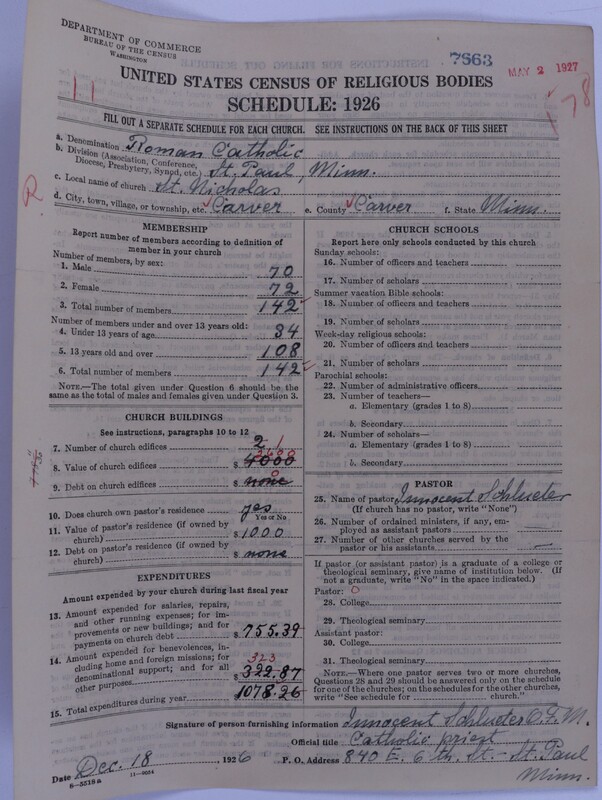 DEPARTMENT OF COMMERCE
BUREAU OF THE CENSUS
WASHINGTON
7663
MAY 2 1927
11
178
UNITED STATES CENSUS OF RELIGIOUS BODIES
SCHEDULE: 1926
FILL OUT A SEPARATE SCHEDULE FOR EACH CHURCH. SEE INSTRUCTIONS ON THE BACK OF THIS SHEET
a. Denomination Roman Catholic
b. Division (Association, Conference, Diocese, Presbytery, Synod, etc.) St. Paul, Minn.
c. Local name of church St. Nicholas
R
d. City, town, village, or township, etc. Carver e. County Carver f. State Minn.
MEMBERSHIP
Report number of members according to definition of
member in your church
Number of members, by sex:
1. Male 70
2. Female 72
3. Total number of members 142
Number of members under and over 13 years old:
4. Under 13 years of age 34
5. 13 years old and over 108
6. Total number of members 142
NOTE.—The total given under Question 6 should be
same as the total of males and females given under Question 3.
CHURCH BUILDINGS
See instructions, paragraphs 10 to 12
7. Number of church edifices 2 1
8. Value of church edifices $ 4000
9. Debt on church edifices $ none 0
10. Does church own pastor's residence yes
Yes or No
11. Value of pastor's residence (if owned by
church) $ 1000
12. Debt on pastor's residence (if owned by
church) $ none
EXPENDITURES
Amount expended by your church during last fiscal year
13. Amount expended for salaries, repairs,
and other running expenses; for im-
provements or new buildings; and for
payments on church debt $ 755.39
14. Amount expended for benevolences, in-
cluding home and foreign missions; for
denominational support; and for all
other purposes 323 $ 322.87
15. Total expenditures during year 1078.26
CHURCH SCHOOLS
Report here only schools conducted by this church
Sunday schools:
16. Number of officers and teachers
17. Number of scholars
Summer vacation Bible schools:
18. Number of officers and teachers
19. Number of scholars
Week-day religious schools:
20. Number of officers and teachers
21. Number of scholars
Parochial schools:
22. Number of administrative officers
23. Number of teachers—
a. Elementary (grades 1 to 8)
b. Secondary
24. Number of scholars—
a. Elementary (grades 1 to 8)
b. Secondary
PASTOR
25. Name of pastor Innocent Schlueter
(If church has no pastor, write "None")
26. Number of ordained ministers, if any, em-
ployed as assistant pastors
27. Number of other churches served by the
pastor or his assistants
If pastor (or assistant pastor) is a graduate of a college or
theological seminary, give name of institution below. (If
not a graduate, write "No" in the space indicated.)
Pastor: 0
28. College
29. Theological seminary
Assistant pastor:
30. College
31. Theological seminary
NOTE.—Where one pastor serves two or more churches,
Questions 28 and 29 should be answered only on the schedule
for one of the churches; on the schedules for the other churches,
write "See schedule for church."
Signature of person furnishing information Innocent Schlueter O.F.M.
Official title Catholic priest
Date Dec. 18, 1926 P. O. Address 840 E. 6 th. St. - St. Paul
Minn.
8-5518a 11-9024